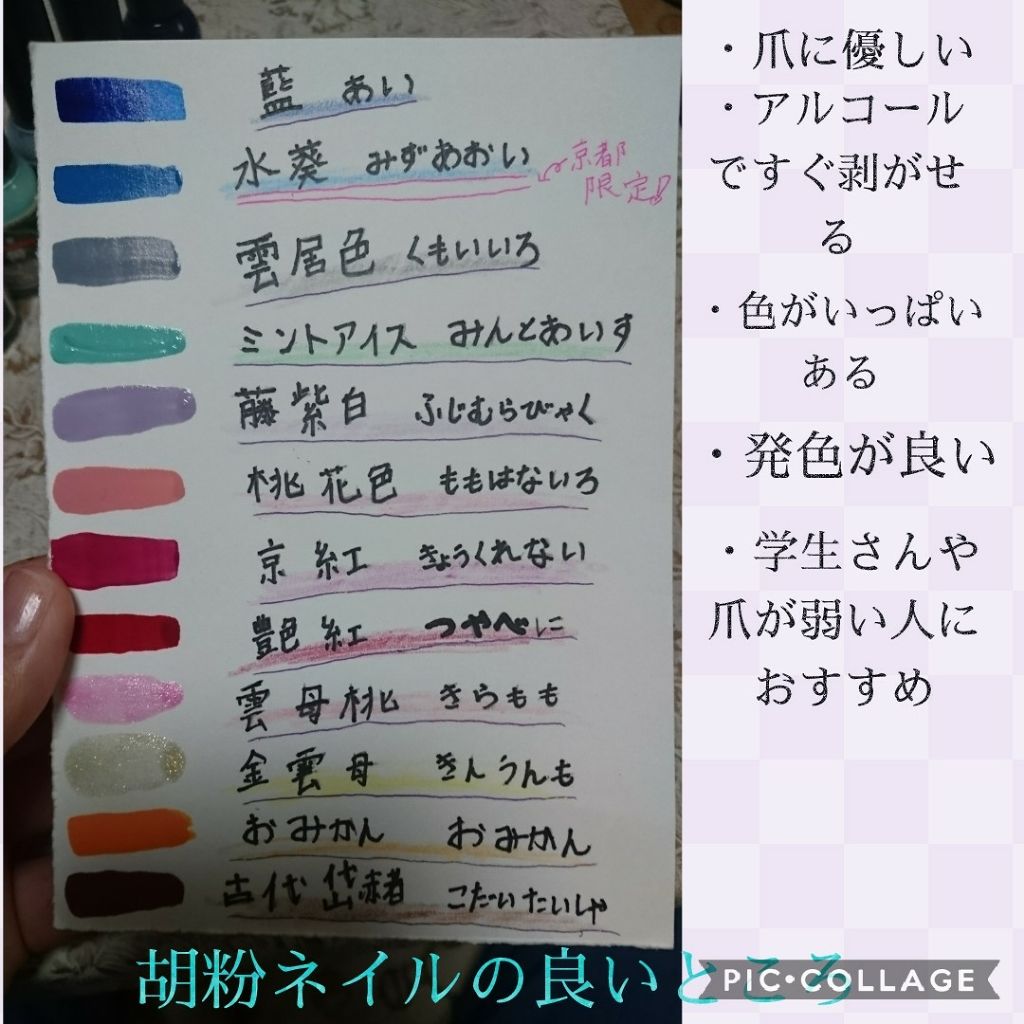 藍 あい
水葵 みずあおい
京都
限定!
雲居色 くもいいろ
ミントアイス みんとあいす
藤紫白 ふじむらびゃく
桃花色 ももはないろ
京紅 きょうくれない
艶紅 つやべに
雲母桃 きらもも
金雲母 きんうんも
おみかん おみかん
古代岱赭 こだいたいしゃ
・爪に優しい
・アルコール
ですぐ剥がせ
る
・色がいっぱい
ある
・発色が良い
・学生さんや
爪が弱い人に
おすすめ
胡粉ネイルの良いところ
PIC•COLLAGE